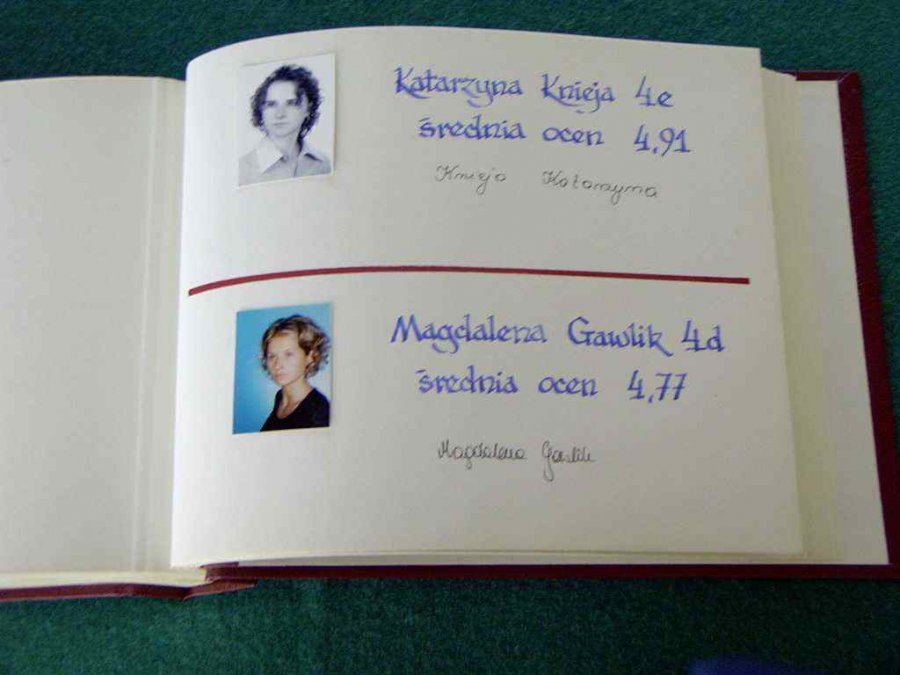 Katarzyna Knieja 4e
średnia ocen 4,91
Knieja Katarzyna
Magdalena Gawlik 4d
średnia ocen 4,77
Magdalena Gawlik